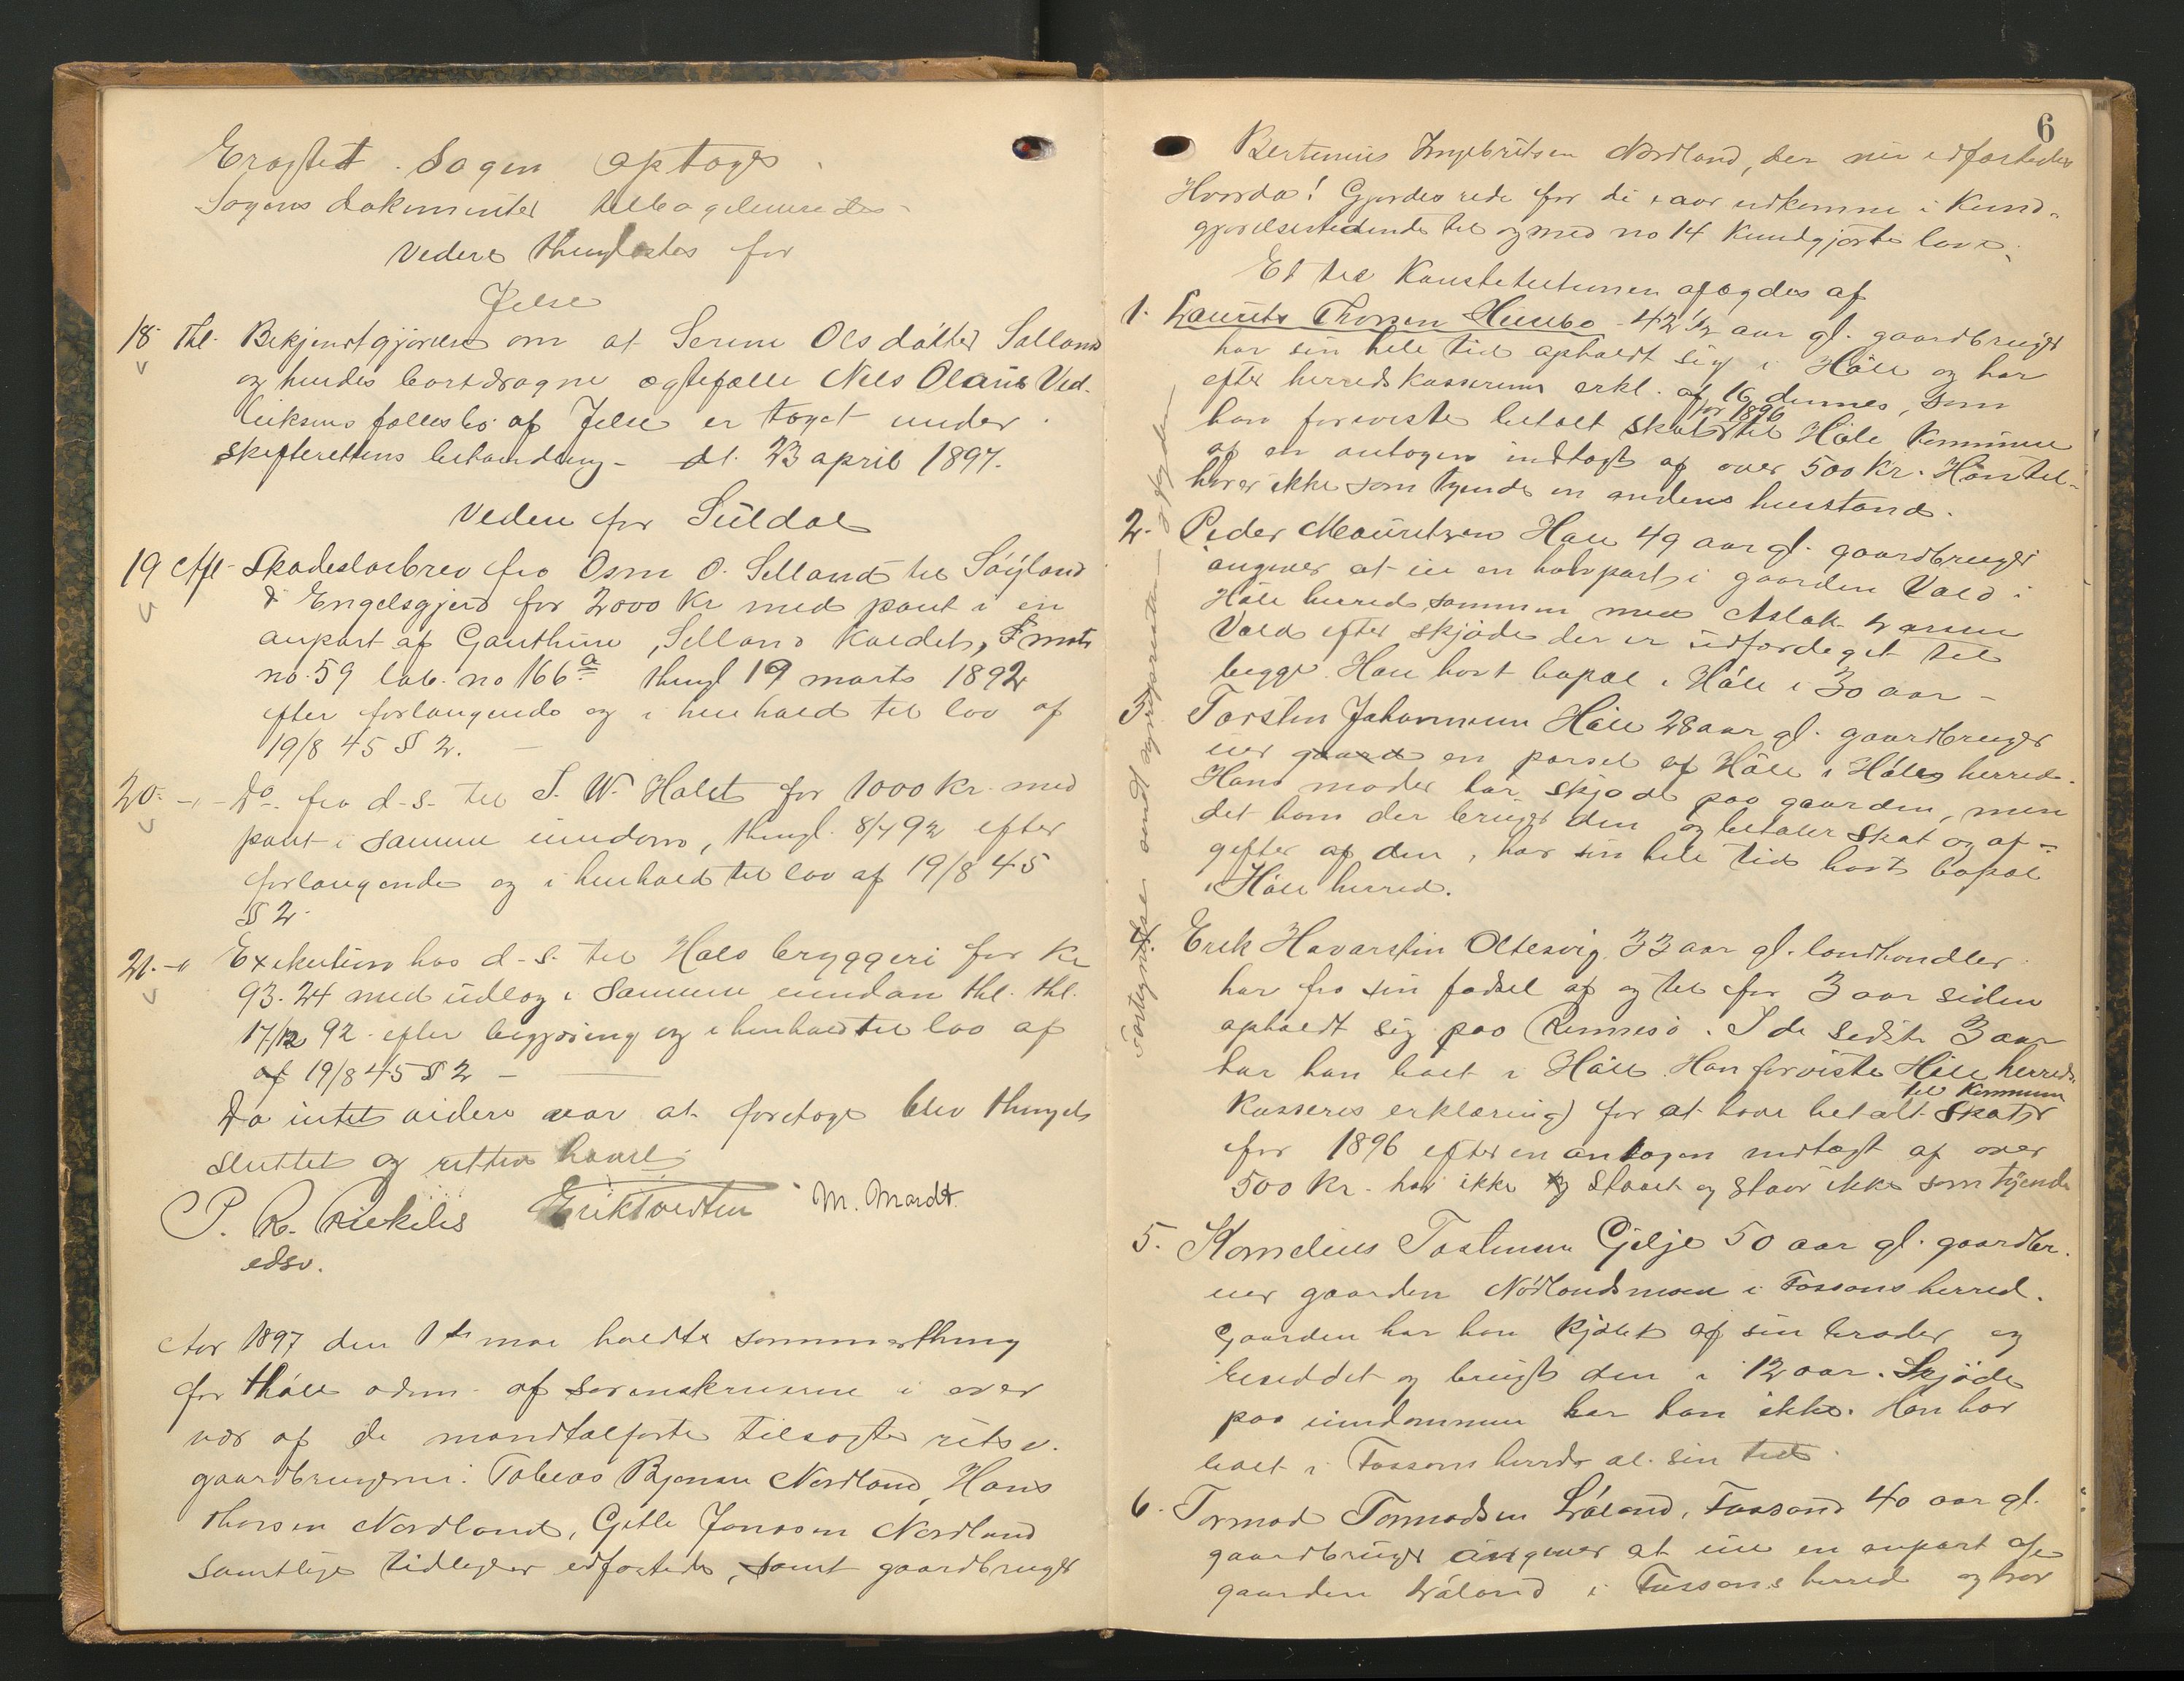 Eragtet. Sagen optages.
Sagens dokumenter tilbageleveredes.
Videre thinglæstes for
Jelse
18. Thl. Bekjendtgjörelse om at Serine Olsdatter Salland
og hendes bortdragne ægtefælle Nels Olaus Ved-
leiksens fællesbo af Jelse er taget under
skifterettens behandling - dt. 23 april 1897.
Videre for Suldal
19 Afl. Skadeslösbrev fra Osm O. Selland til Söyland
& Engelsgjerd for 2000 Kr med pant i en
anpart af Gauthun, Selland kaldet, matr
no. 59 löb. no 166a thingl 19 marts 1892
efter forlangende og i henhold til lov af
19/8 45 § 2. -
20. -"- Do. fra d.s. til S. W. Halst for 1000 kr. med
pant i samme eiendom, thingl. 8/4 92 efter
forlangende og i henhold til lov af 19/8 45
§ 2.
21. -" Exekution hos d.s. til Hals bryggeri for kr
93.24 med udlæg i samme eiendom thl. thl.
17/12 92 efter begjæring og i henhold til lov af
af 19/8 45 § 2 -
Da intet videre var at foretage blev thinget
sluttet og retten hævet.
P. R. edsv. M. Mardt.
Aar 1897 den 1ste mai holdtes sommerthing
for Höle adm. af sorenskriveren i over
vær af de mandtalførte tilsagte retsv.
gaardbrugerne: Tobias Bjensen Nordland, Hans
Thorsen Nordland, Gitle Jonassen Nordland
samtlige tidligere edfæstede, samt gaardbruger
6
Bertinius Ingebritsen Nordland, der nu edfæstedes
Hvorda! Gjordes rede for de i aar udkomne i Kund-
gjörelsestidende til og med no 14 kundgjorte love.
Ed til Konstitutionen aflagdes af
1. Laurits Thorsen Husebø - 42 1/2 aar gl. gaardbruger
har sin hele tid opholdt sig i Höle og har
efter herredskassererens erkl. af 16 dennes, som
for 1896
han foreviste betalt skat til Höle Kommune
af en antagen indtægt af over 500 kr. Han til-
hører ikke som tyende en andens husstand.
2. Peder Mauritzen Hau 49 aar gl. gaardbruger
angiver at eie en halvpart i gaarden Vald i
Höle herred, sammen med Aslak Larsen
Vald efter skjöde der er udfærdiget til
begge. Han havt bopæl i Höle i 30 aar -
3. Torsten Johannesen Höle 28 aar gl. gaardbruger
eier gaard en parsel af Höle i Höles herred.
Hans moder har skjöde paa gaarden, men
det ham der bruger den og betaler skat og af-
gifter af den, har sin hele tid havt bopæl
i Höle herred.
4. Erik Havarstin Oltesvig 33 aar gl. landhandler.
har fra sin födsel af og til for 3 aar siden
opholdt sig paa Rennesö. I de sidste 3 aar
har han boet i Höle. Han foreviste Höle herreds-
til kommunen
kasseres erklæring) for at have betalt skat
for 1896 efter en antagen indtægt af over
500 kr. har ikke staaet og staar ikke som tyende
5. Kornelius Tostensen Gilje 50 aar gl. gaardbr.
eier gaarden Nödlandsmoen i Fossans herred.
Gaarden har han kjöbt af sin broder og
besiddet og brugt den i 12 aar. Skjöde
paa eiendommen har han ikke. Han har
boet i Fossans herred al sin tid.
6. Tormod Tormodsen Låland, Fossand 40 aar gl.
gaardbruger angiver at eie en anpart af
gaarden Låland i Fossans herred og har